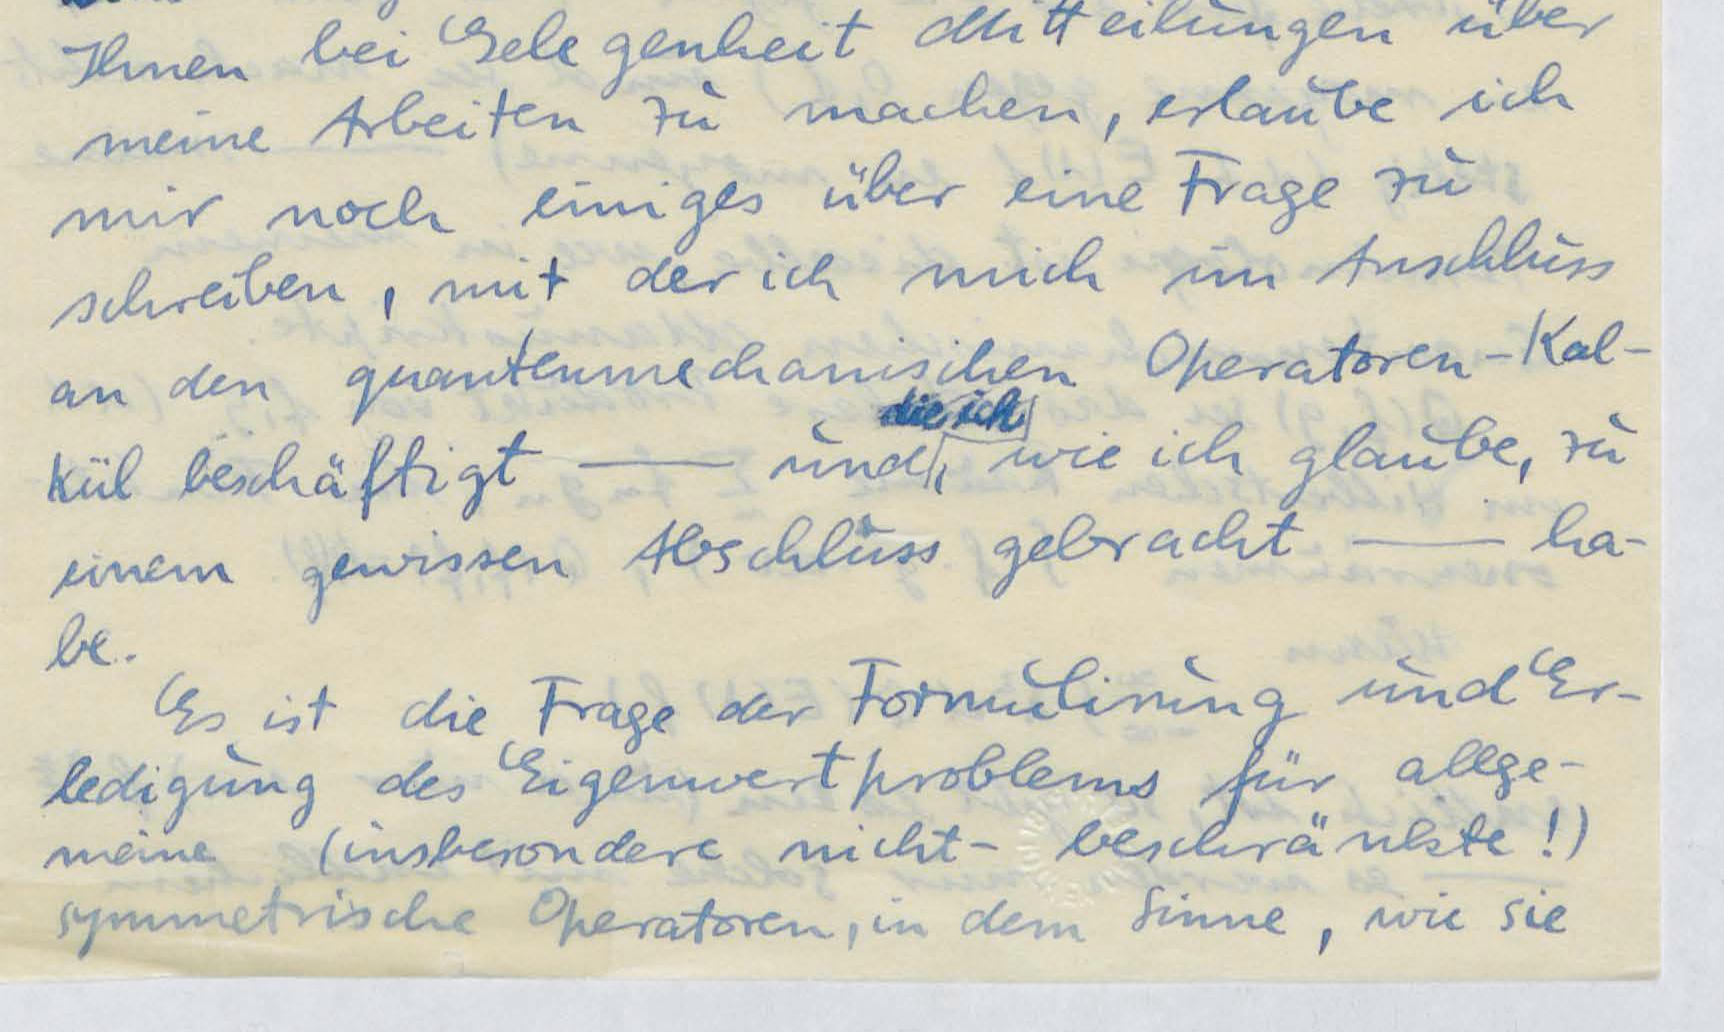 Ihnen bei Gelegenheit Mitteilungen über
meine Arbeiten zu machen, erlaube ich
mir noch einiges über eine Frage zu
schreiben, mit der ich mich im Anschluss
an den quantenmechanischen Operatoren-Kal-
die ich
kül beschäftigt — und, wie ich glaube, zu
einem gewissen Abschluss gebracht — ha-
be.
Es ist die Frage der Formulirung und Er-
ledigung des Eigenwertproblems für allge-
meine (insbesondere nicht-beschränkte!)
symmetrische Operatoren, in dem Sinne, wie sie